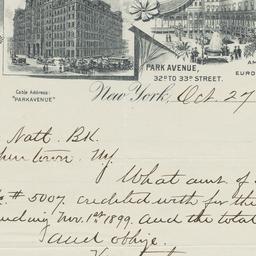 PARK AVENUE,
32D TO 33D STREET.
AM
EURO
Cable Address:
"PARKAVENUE"
New York, Oct. 27
Natl. Bk.
town. NY.
What amt. of
# 5007. credited with for the
ending Nov. 1st 1899. and the total
and oblige.